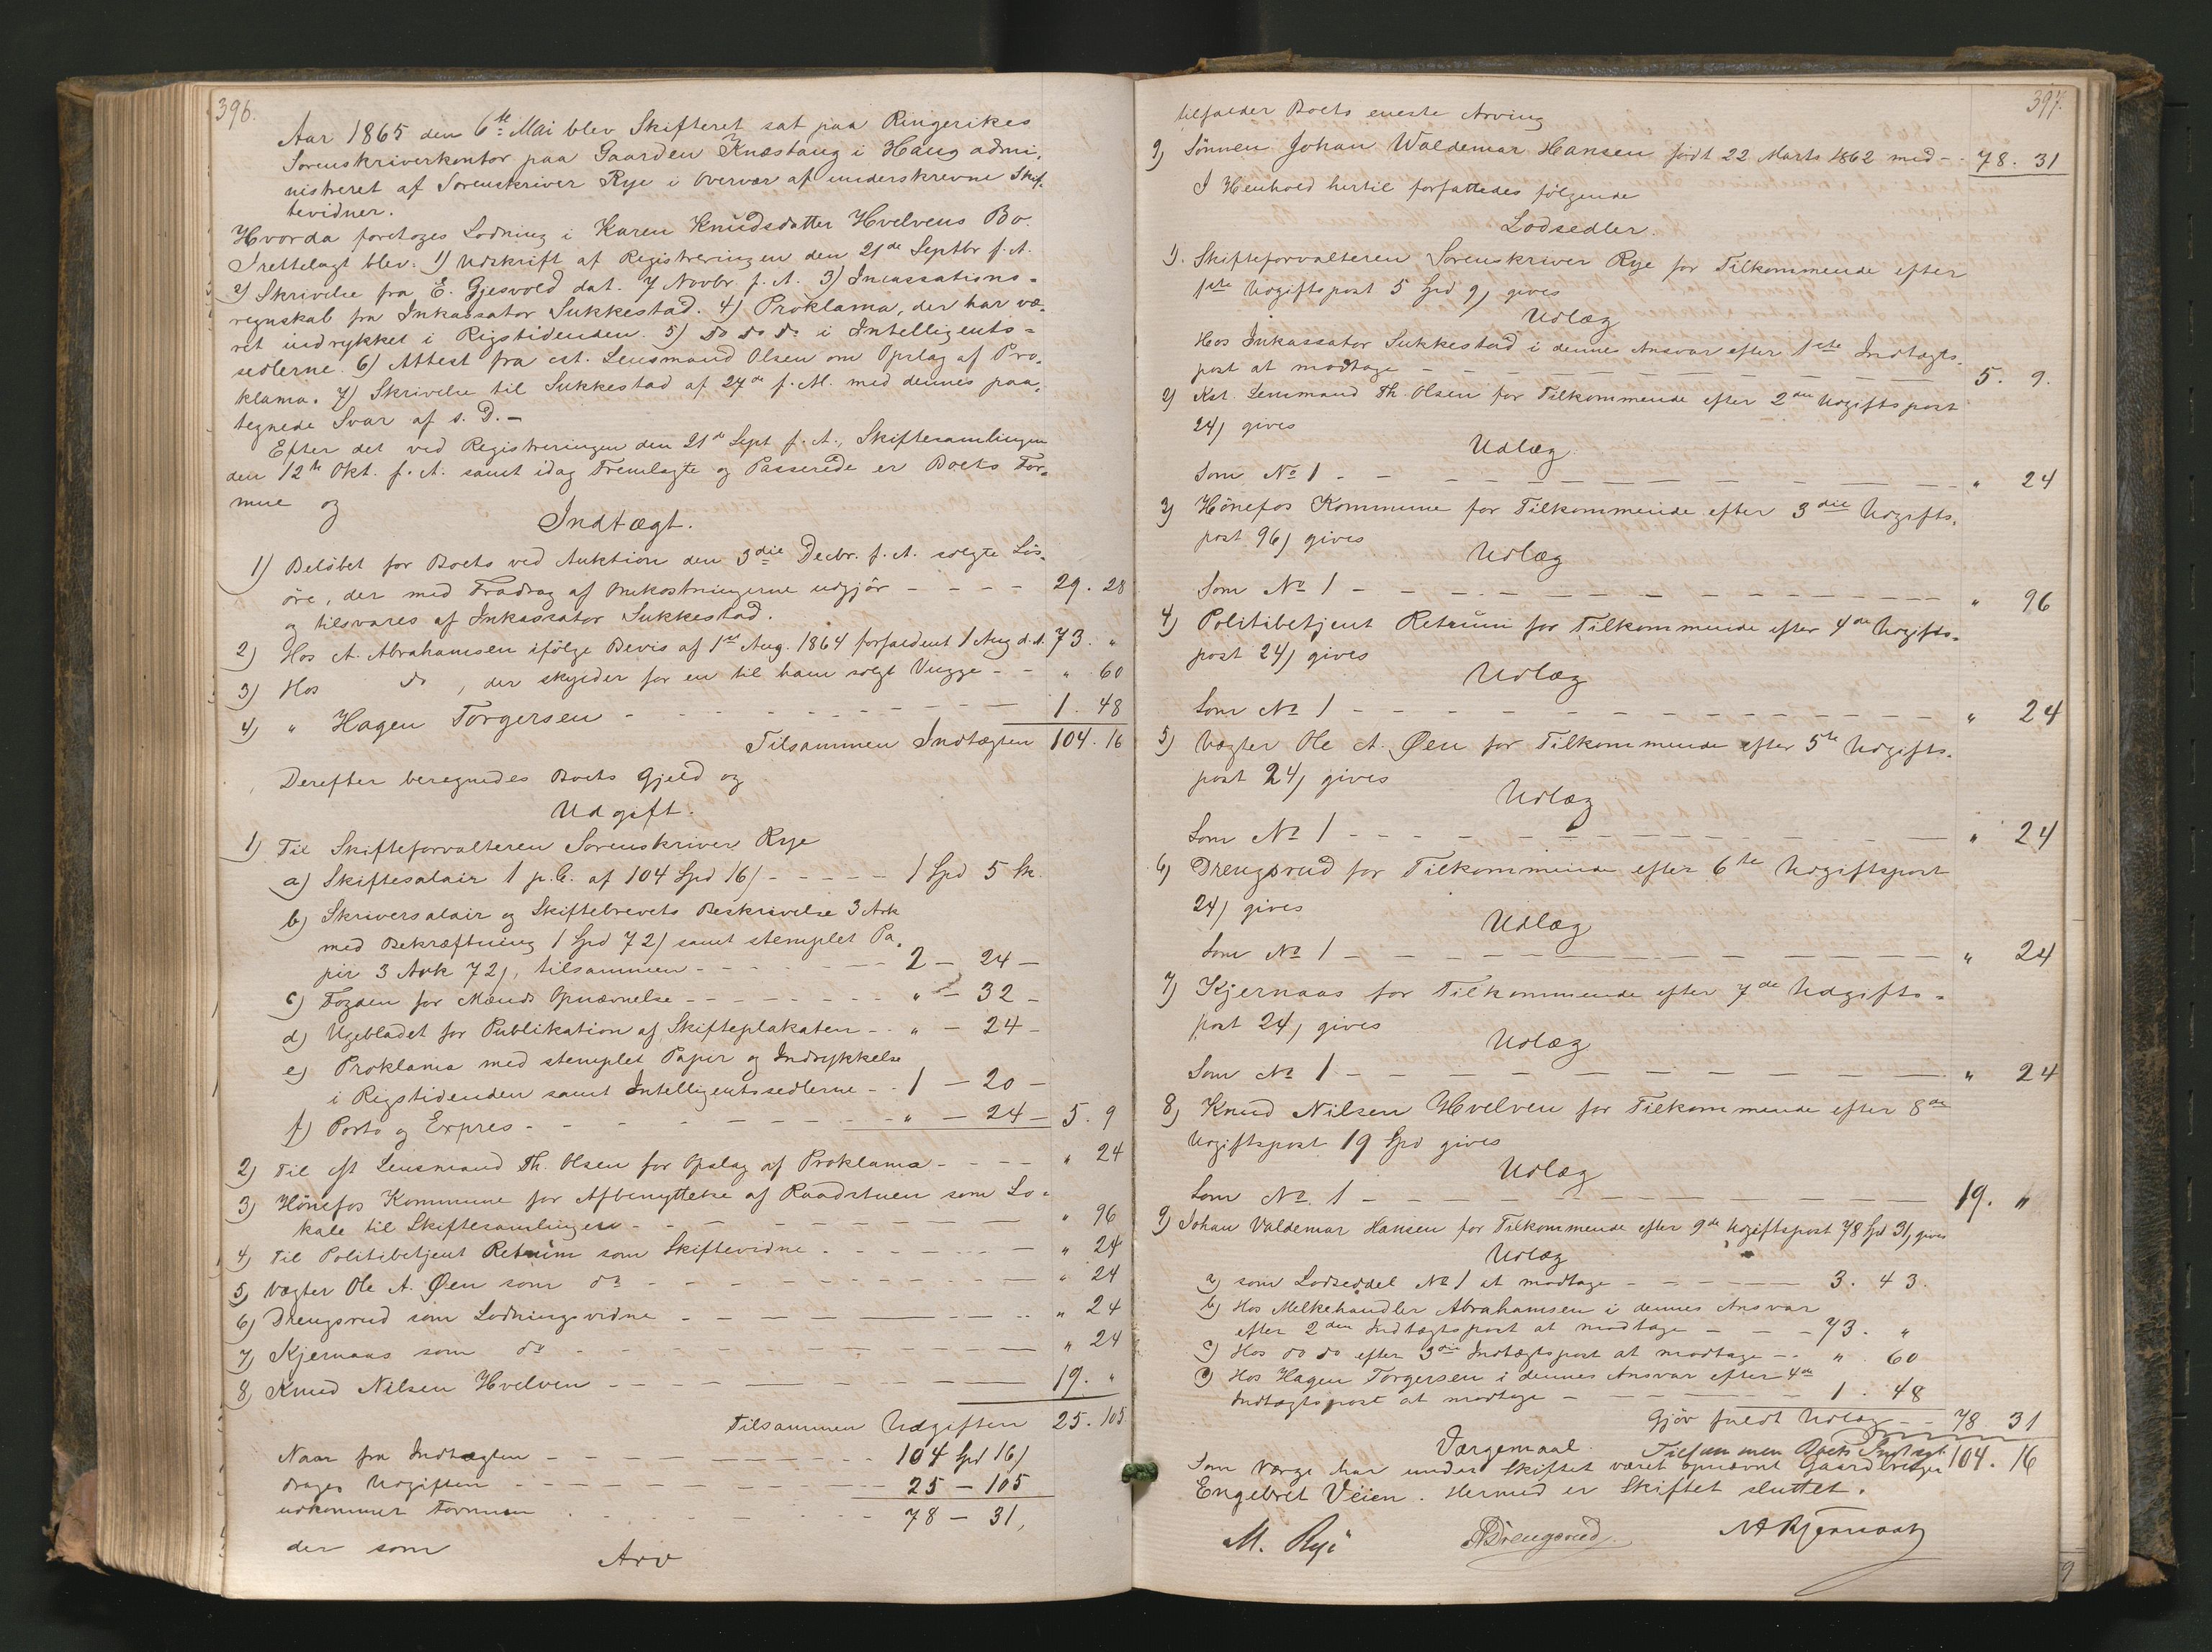 396.
Aar 1865 den 6te Mai blev Skifteret sat paa Ringerikes
Sorenskriverkontor paa Gaarden Knæstang i Haug admi-
nistreret af Sorenskriver Rye i Overvær af underskrevne Skif-
tevidner.
Hvorda foretoges Lodning i Karen Knudsdatter Hvelvens Bo.
Irettelagt blev: 1) Udskrift af Registreringen den 21de Septbr f. A.
2) Skrivelse fra E. Gjesvold dat. 7 Novbr f. A. 3) Incassations-
regnskab fra Inkassator Sukkestad. 4) Proklama, der har væ-
ret indrykket i Rigstidenden. 5) do do do i Intelligents-
sedlerne. 6) Attest fra cst. Lensmand Olsen om Opslag af Pro-
klama. 7) Skrivelse til Sukkestad af 24de f. M. med dennes paa-
tegnede Svar af s. D. –
Efter det ved Registreringen den 21de Sept f. A., Skiftesamlingen
den 12te Okt. f. A. samt idag Fremlagte og Passerede er Boets For-
mue og
Indtægt.
1) Beløbet for Boets ved Auktion den 3die Decbr. f. A. solgte Løs-
øre, der med Fradrag af Omkostningerne udgjør – – – – 29. 28
og tilsvares af Inkassator Sukkestad.
2) Hos A. Abrahamsen ifølge Bevis af 1ste Aug. 1864 forfaldent 1 Aug d. A. 73. "
3) Hos do, der skylder for en til ham solgt Vugge – – " 60
4) " Hagen Torgersen – – – – – 1. 48
Tilsammen Indtægten 104. 16
Derefter beregnedes Boets Gjeld og
Udgift.
1) Til Skifteforvalteren Sorenskriver Rye
a) Skiftesalair 1 p.C. af 104 Spd 16/ – – – – – 1 Spd 5 Sk.
b) Skriversalair og Skiftebrevets Beskrivelse 3 Ark
med Bekræftning 1 Spd 72/ samt stemplet Pa-
pir 3 Ark 72/, tilsammen – – – – – 2 – 24 –
c) Fogden for Mænds Opnævnelse – – – – – " – 32 –
d) Ugebladet for Publikation af Skifteplakaten – – " – 24 –
e) Proklama med stemplet Papir og Indrykkelse
i Rigstidenden samt Intelligentssedlerne – – 1 – 20 –
f) Porto og Expres – – – – – " – 24 – 5. 9
2) Til cst Lensmand Th. Olsen for Opslag af Proklama – – – – " 24
3) Hönefos Kommune for Afbenyttelse af Raadstuen som Lo-
kale til Skiftesamlingen – – – – – " 96
4) Til Politibetjent Retrum som Skiftevidne – – – – – " 24
5) Vægter Ole A. Øen som do – – – – – " 24
6) Drengsrud som Lodningsvidne – – – – – " 24
7) Kjernaas som do – – – – – " 24
8) Knud Nilsen Hvelven – – – – – 19. "
Tilsammen Udgiften 25. 105
Naar fra Indtægten – – – – – 104 Spd 16/
drages Udgiften – – – – – 25 – 105
udkommer Formuen – – – – – 78 – 31,
der som
Arv
397.
tilfalder Boets eneste Arving
9) Sönnen Johan Waldemar Hansen födt 22 Marts 1862 med – 78. 31
I Henhold hertil forfattedes følgende
Lodsedler.
1). Skifteforvalteren Sorenskriver Rye for Tilkommende efter
1ste Udgiftspost 5 Spd 9/ gives
Udlæg
Hos Inkassator Sukkestad i dennes Ansvar efter 1ste Indtægts-
post at modtage – – – – – 5. 9.
2) Kst. Lensmand Th. Olsen for Tilkommende efter 2den Udgiftspost
24/ gives
Udlæg
Som No 1 – – – – – " 24
3) Hönefos Kommune for Tilkommende efter 3die Udgifts-
post 96/ gives
Udlæg
Som No 1 – – – – – " 96
4) Politibetjent Retrum for Tilkommende efter 4de Udgifts-
post 24/ gives
Udlæg
Som No 1 – – – – – " 24
5) Vægter Ole A. Øen for Tilkommende efter 5te Udgifts-
post 24/ gives
Udlæg
Som No 1 – – – – – " 24
6) Drengsrud for Tilkommende efter 6te Udgiftspost
24/ gives
Udlæg
Som No 1 – – – – – " 24
7) Kjernaas for Tilkommende efter 7de Udgifts-
post 24/ gives
Udlæg
Som No 1 – – – – – " 24
8) Knud Nilsen Hvelven for Tilkommende efter 8de
Udgiftspost 19 Spd gives
Udlæg
Som No. 1 – – – – – 19. "
9) Johan Valdemar Hansen for Tilkommende efter 9de Udgiftspost 78 Spd 31/ gives
Udlæg
a) som Lodseddel No 1 at modtage – – – – – 3. 43.
b) Hos Melkehandler Abrahamsen i dennes Ansvar
efter 2den Indtægtspost at modtage – – – 73. "
c) Hos do do efter 3die Indtægtspost at modtage – – " 60
d) Hos Hagen Torgersen i dennes Ansvar efter 4de
Indtægtspost at modtage – – – – – 1. 48
Gjör fuldt Udlæg – – 78 31
Tilsammen Boets Indtægt 104. 16
Værgemaal.
Som Værge har under Skiftet været opnævnt Gaardbruger
Engebret Veien. Hermed er Skiftet sluttet.
M. Rye Drengsrud. Kjernaas